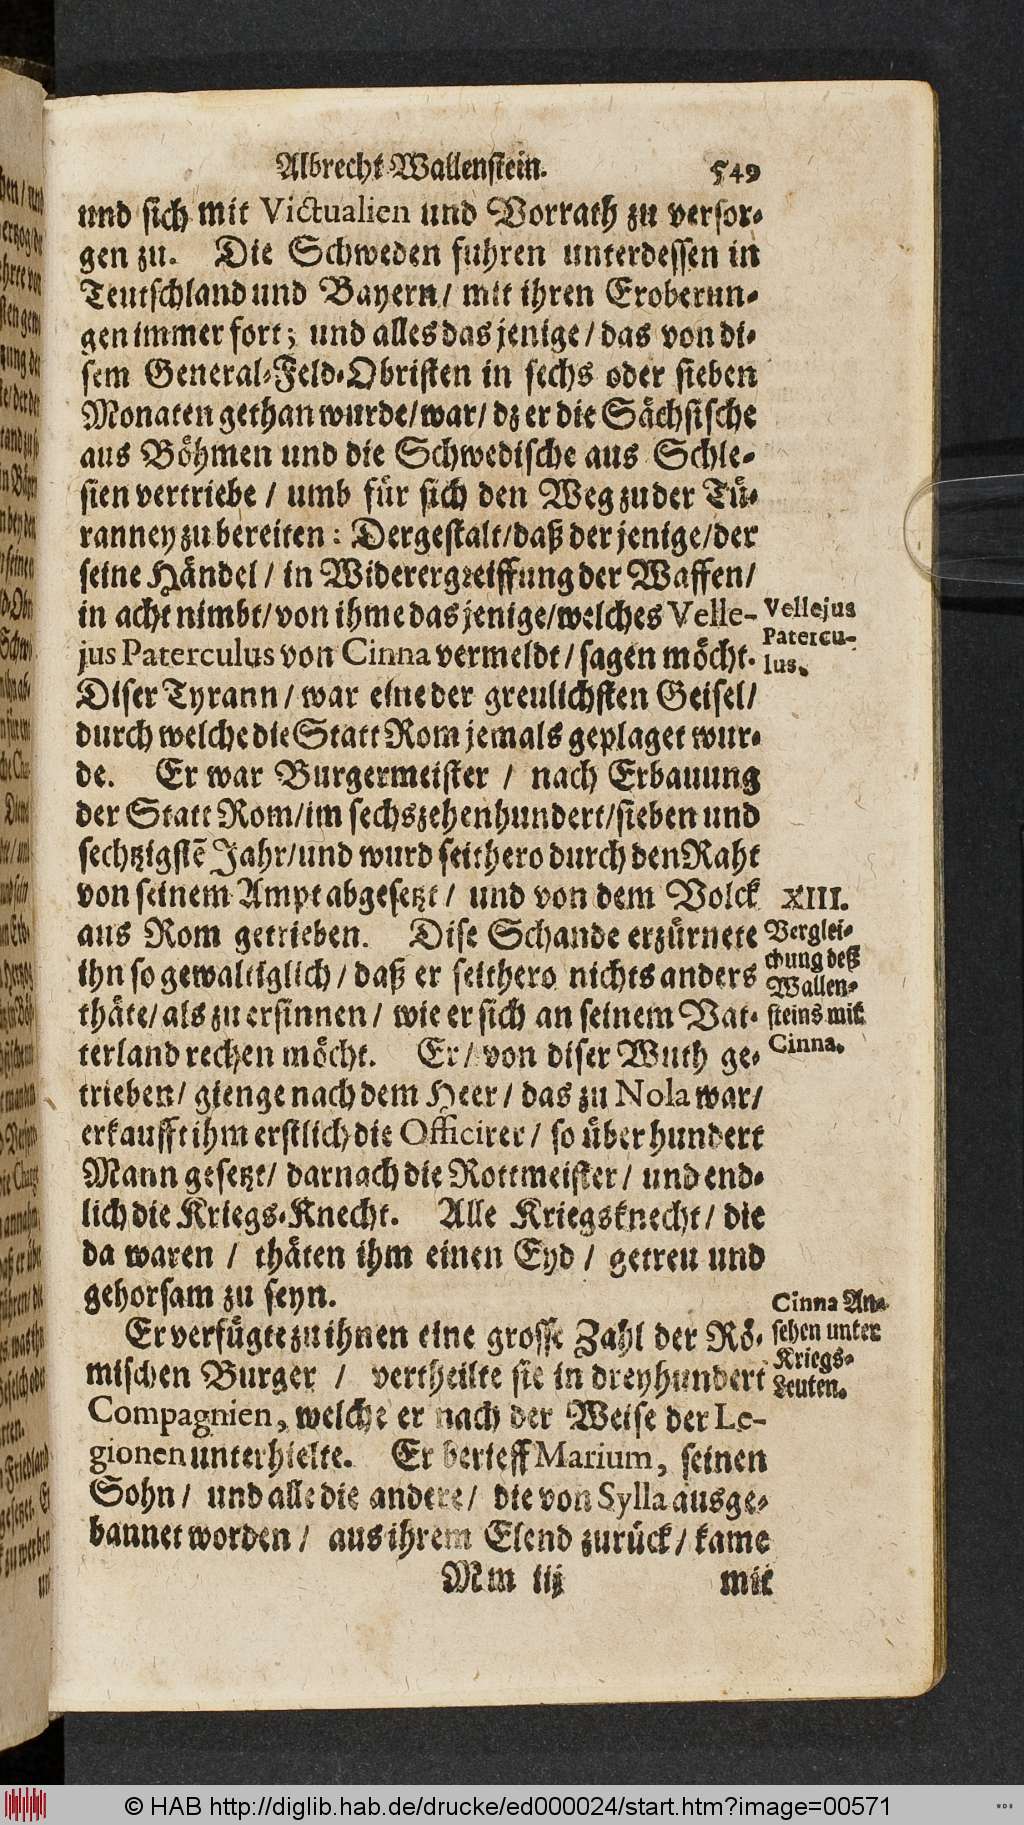 Albrecht Wallenstein. 549
und sich mit Victualien und Vorrath zu versor-
gen zu. Die Schweden fuhren unterdessen in
Teutschland und Bayern/ mit ihren Eroberun-
gen immer fort; und alles das jenige/ das von di-
sem General-Feld-Obristen in sechs oder sieben
Monaten gethan wurde/ war/ dz er die Sächsische
aus Böhmen und die Schwedische aus Schle-
sien vertriebe/ umb für sich den Weg zu der Tü-
ranney zu bereiten: Dergestalt/ daß der jenige/ der
seine Händel/ in Widerergreiffung der Waffen/
in acht nimbt/ von ihme das jenige/ welches Velle-
jus Paterculus von Cinna vermeldt/ sagen möcht.
Diser Tyrann/ war eine der greulichsten Geisel/
durch welche die Statt Rom jemals geplaget wur-
de. Er war Burgermeister/ nach Erbauung
der Statt Rom/ im sechszehenhundert/ sieben und
sechtzigstē Jahr/ und wurd seithero durch den Raht
von seinem Ampt abgesetzt/ und von dem Volck
aus Rom getrieben. Dise Schande erzürnete
ihn so gewaltiglich/ daß er seithero nichts anders
thäte/ als zu ersinnen/ wie er sich an seinem Vat-
terland rechen möcht. Er/ von diser Wuth ge-
trieben/ gienge nach dem Heer/ das zu Nola war/
erkaufft ihm erstlich die Officirer/ so über hundert
Mann gesetzt/ darnach die Rottmeister/ und end-
lich die Kriegs-Knecht. Alle Kriegsknecht/ die
da waren/ thäten ihm einen Eyd/ getreu und
gehorsam zu seyn.
Er verfügte zu ihnen eine grosse Zahl der Rö-
mischen Burger/ vertheilte sie in dreyhundert
Compagnien, welche er nach der Weise der Le-
gionen unterhielte. Er berieff Marium, seinen
Sohn/ und alle die andere/ die von Sylla ausge-
bannet worden/ aus ihrem Elend zurück/ kame
Mm iij mit
Vellejus
Patercu-
lus.
XIII.
Verglei-
chung deß
Wallen-
steins mit
Cinna.
Cinna An-
sehen unter
Kriegs-
Leuten.
© HAB http://diglib.hab.de/drucke/ed000024/start.htm?image=00571